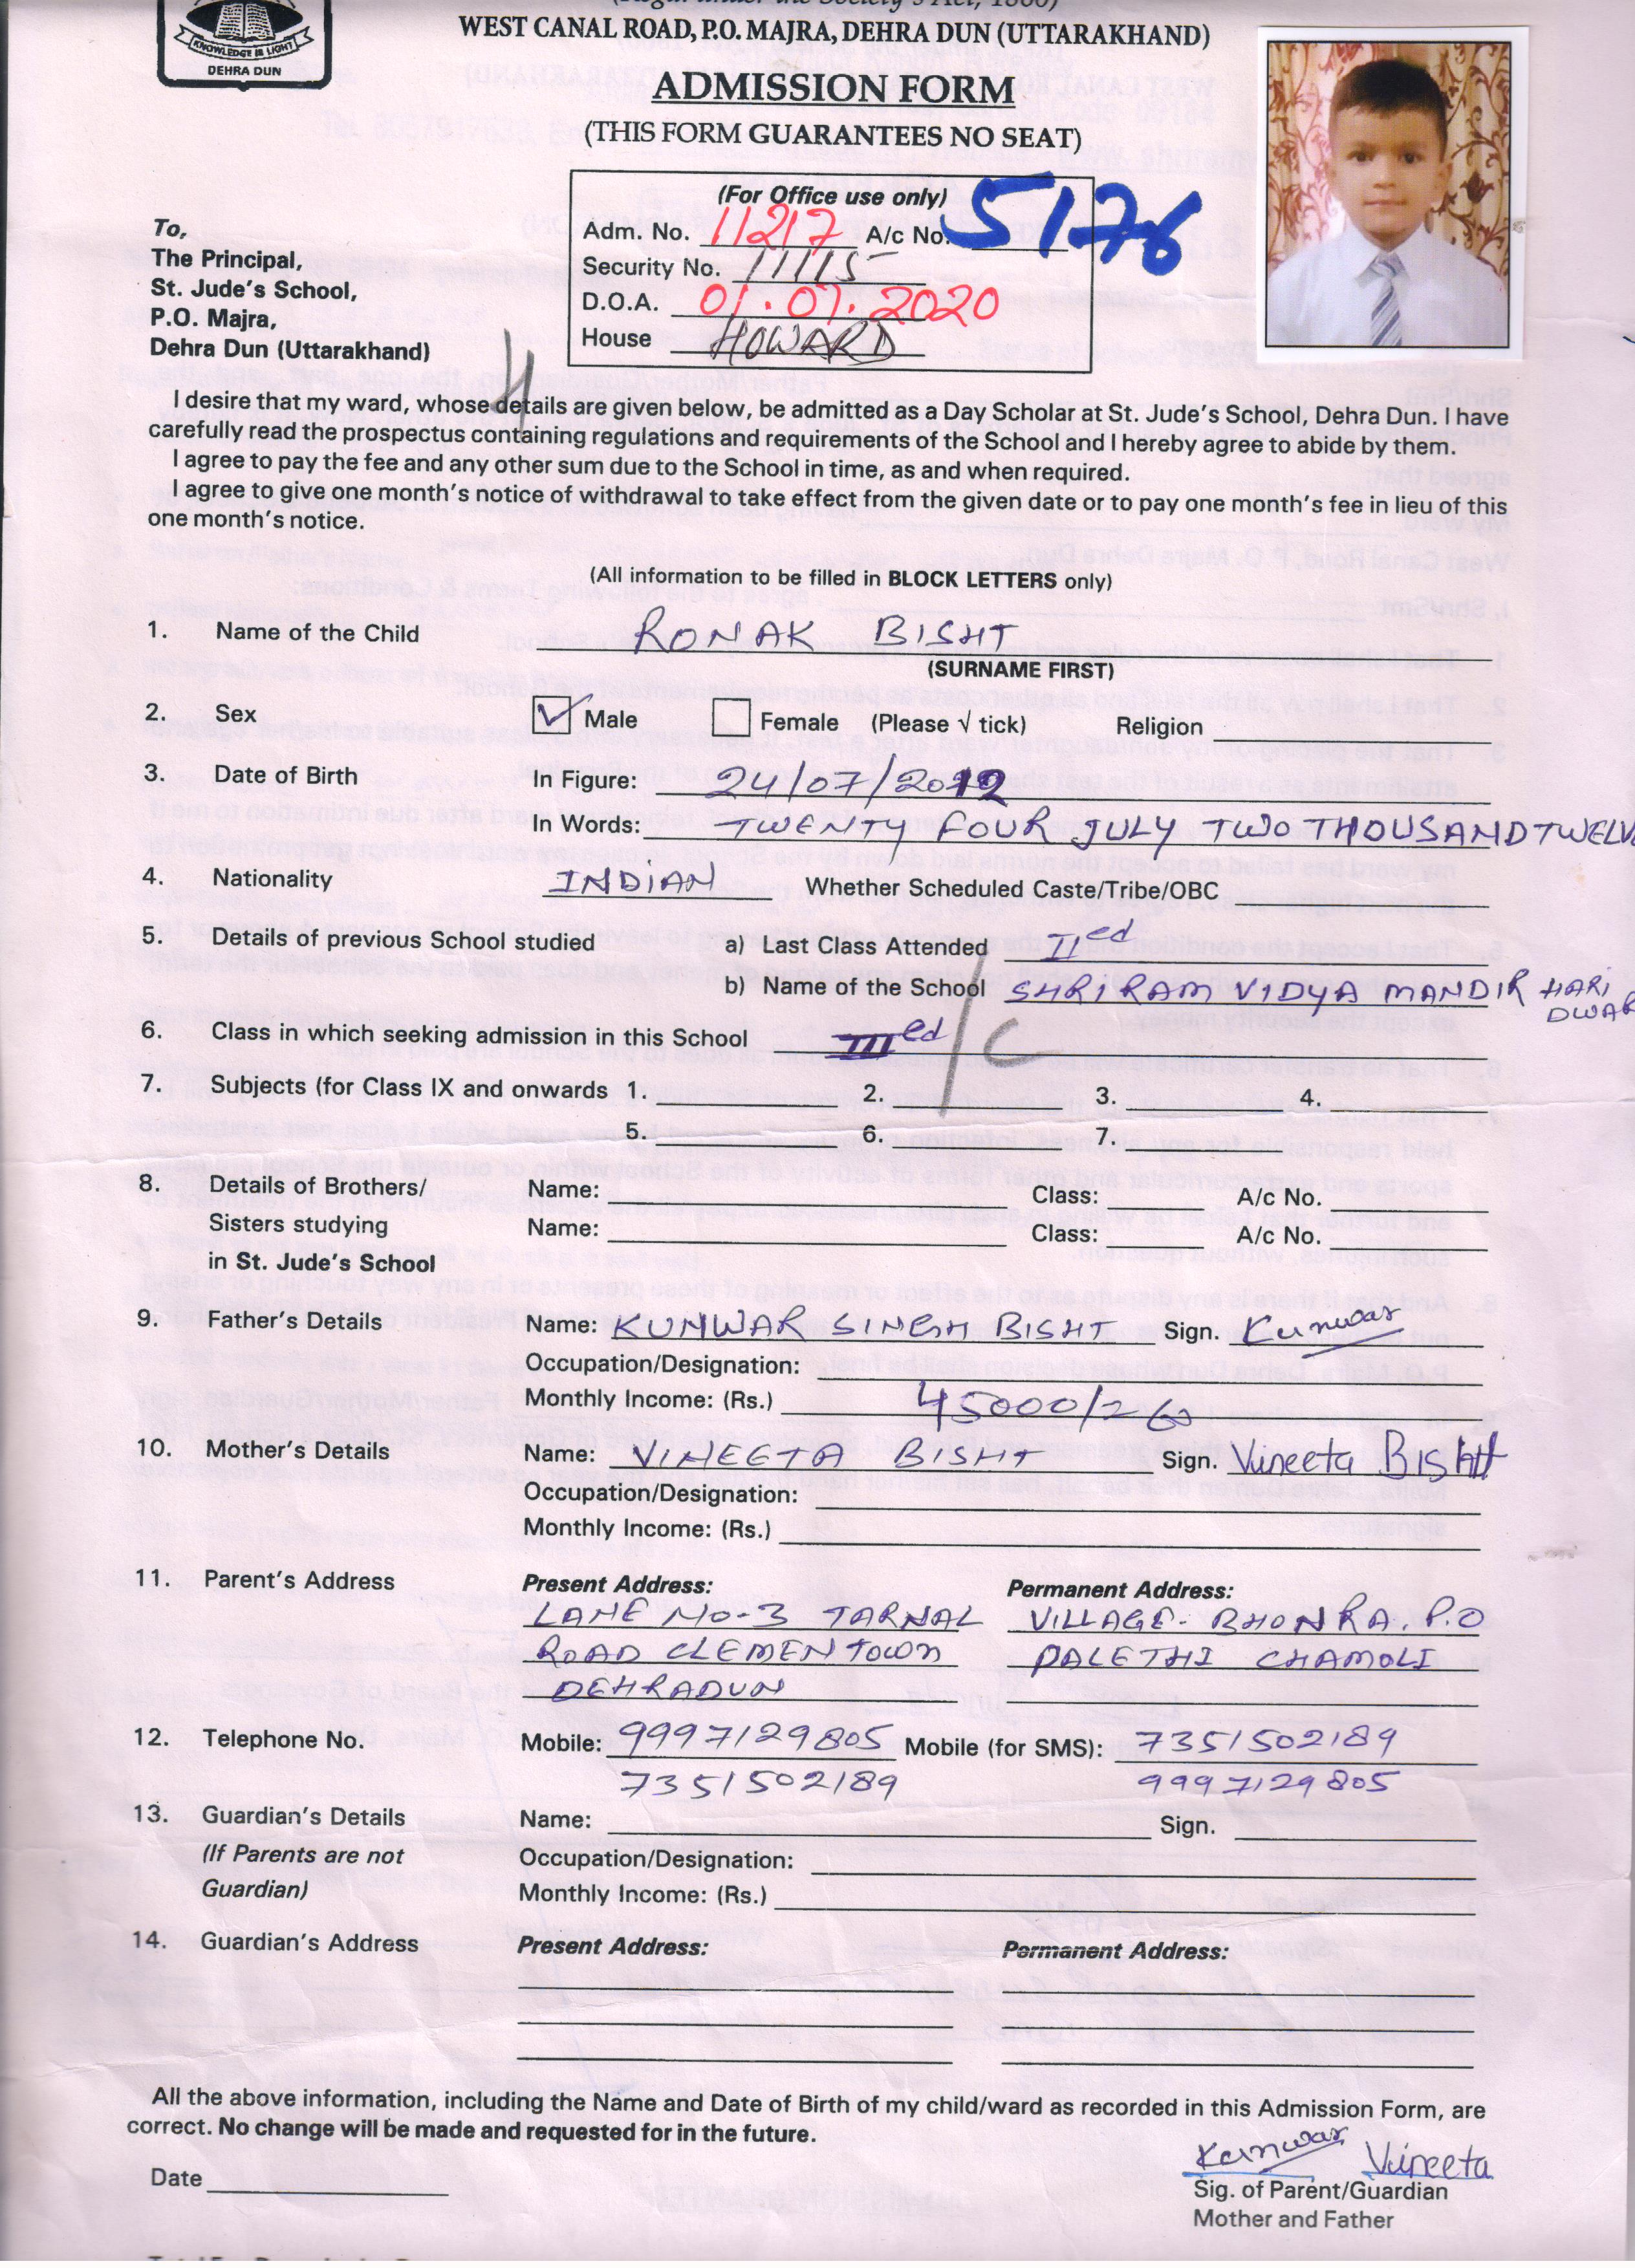 KNOWLEDGE IS LIGHT
DEHRA DUN
WEST CANAL ROAD, P.O. MAJRA, DEHRA DUN (UTTARAKHAND)
ADMISSION FORM
(THIS FORM GUARANTEES NO SEAT)
(For Office use only)
Adm. No. 11217 A/c No. 5176
Security No. 11115
D.O.A. 01.07.2020
House HOWARD
To,
The Principal,
St. Jude's School,
P.O. Majra,
Dehra Dun (Uttarakhand)
I desire that my ward, whose details are given below, be admitted as a Day Scholar at St. Jude's School, Dehra Dun. I have
carefully read the prospectus containing regulations and requirements of the School and I hereby agree to abide by them.
I agree to pay the fee and any other sum due to the School in time, as and when required.
I agree to give one month's notice of withdrawal to take effect from the given date or to pay one month's fee in lieu of this
one month's notice.
(All information to be filled in BLOCK LETTERS only)
1. Name of the Child RONAK BISHT
(SURNAME FIRST)
2. Sex Male Female (Please √ tick) Religion
3. Date of Birth In Figure: 24/07/2012
In Words: TWENTY FOUR JULY TWO THOUSAND TWELV
4. Nationality INDIAN Whether Scheduled Caste/Tribe/OBC
5. Details of previous School studied a) Last Class Attended II ed
b) Name of the School SHRI RAM VIDYA MANDIR HARI
DWAR
6. Class in which seeking admission in this School III ed / C
7. Subjects (for Class IX and onwards 1. 2. 3. 4.
5. 6. 7.
8. Details of Brothers/ Name: Class: A/c No.
Sisters studying Name: Class: A/c No.
in St. Jude's School
9. Father's Details Name: KUNWAR SINGH BISHT Sign. Kunwar
Occupation/Designation:
Monthly Income: (Rs.) 45000/
10. Mother's Details Name: VINEETA BISHT Sign. Vineeta BISHt
Occupation/Designation:
Monthly Income: (Rs.)
11. Parent's Address Present Address: Permanent Address:
LANE NO-3 TARNAL VILLAGE- BHONRA. P.O
ROAD CLEMEN TOWN PALETHI CHAMOLI
DEHRADUN
12. Telephone No. Mobile: 9997129805 Mobile (for SMS): 7351502189
7351502189 9997129805
13. Guardian's Details Name: Sign.
(If Parents are not Occupation/Designation:
Guardian) Monthly Income: (Rs.)
14. Guardian's Address Present Address: Permanent Address:
All the above information, including the Name and Date of Birth of my child/ward as recorded in this Admission Form, are
correct. No change will be made and requested for in the future.
Kunwar Vineeta
Date
Sig. of Parent/Guardian
Mother and Father